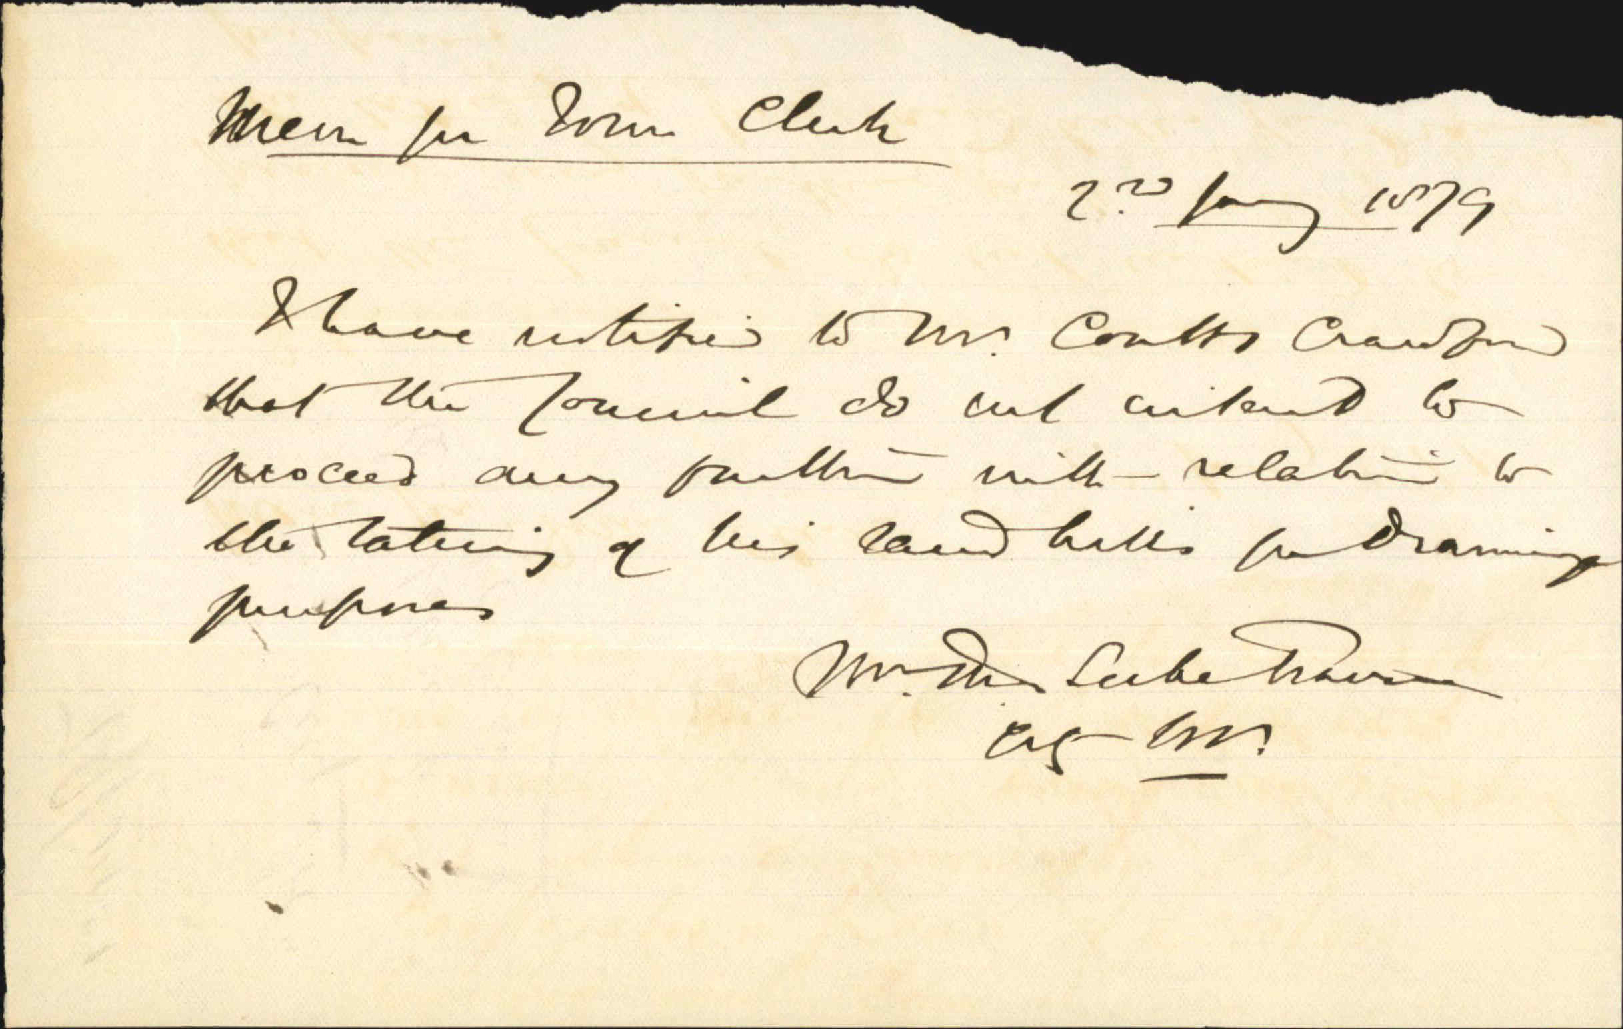 Mem for Town Clerk
2nd Jany 1879
I have notified to Mr. Coutts Crawford
that the Council do not intend to
proceed any further with relation to
the taking of his sand hills for Drainage
purposes
Wm. Thos Locke Travers
City Solr.